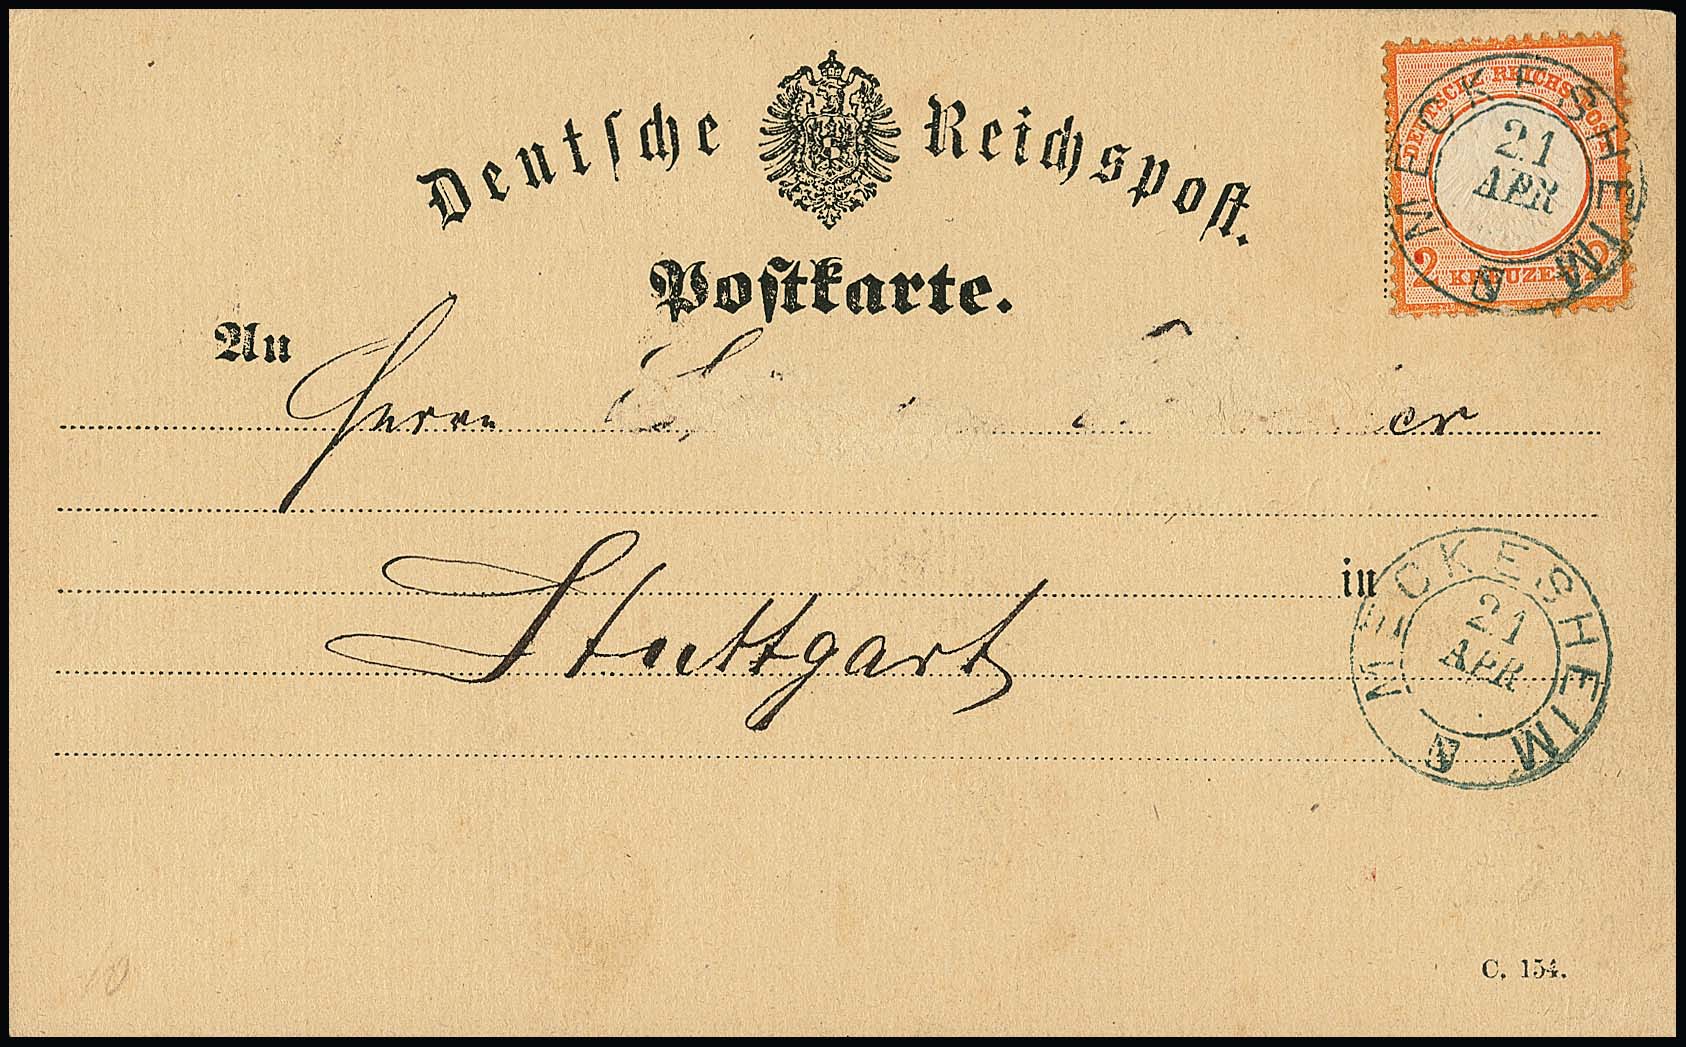 Deutsche Reichspost.
Postkarte.
DEUTSCHE REICHS-POST
2 KREUZER 2
MECKESHEIM
21
APR
An
Herrn
in
Stuttgart
MECKESHEIM
21
APR
C. 154.